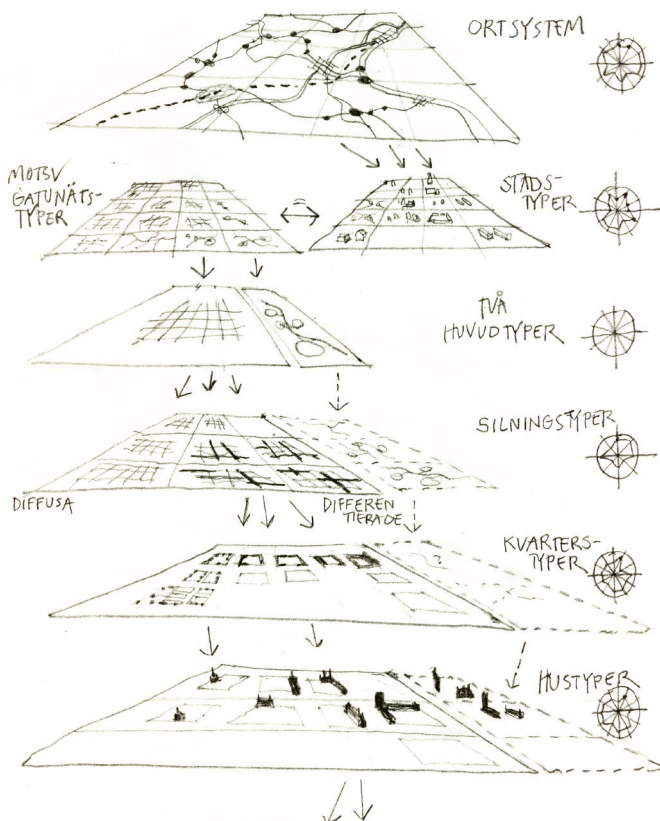 ORTSYSTEM
MOTSV
GATUNÄTS-
TYPER
STADS-
TYPER
TVÅ
HUVUDTYPER
SILNINGSTYPER
DIFFUSA
DIFFEREN
TIERADE
KVARTERS-
TYPER
HUSTYPER